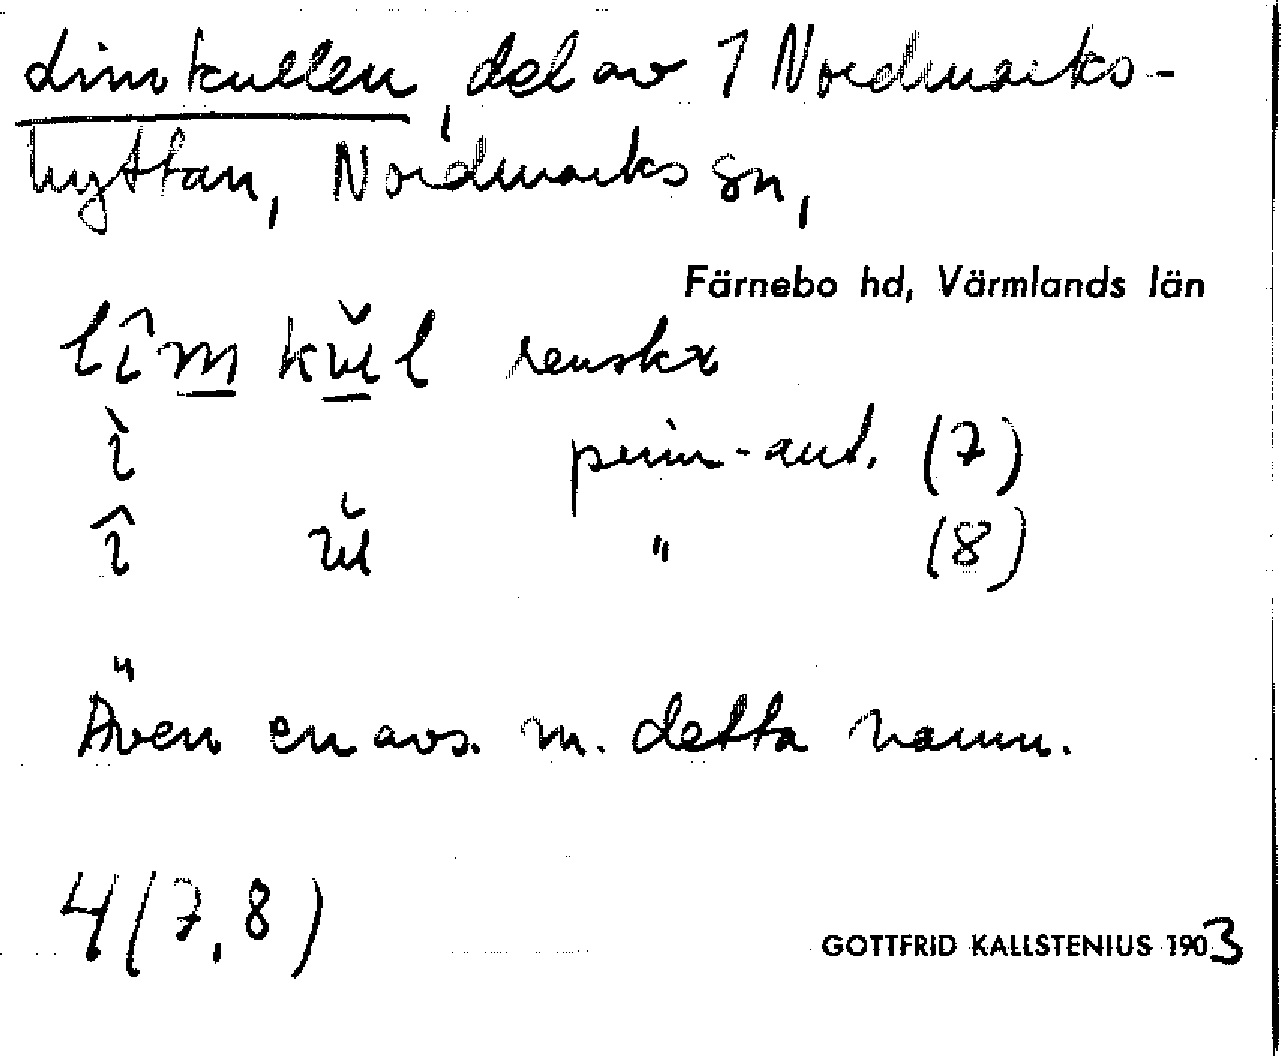 Limkullen, del av 1 Nordmarks-
hyttan, Nordmarks sn,
Färnebo hd, Värmlands län
lîm kŭl renskr
ì prim-ant. (7)
î ŭ " (8)
Även en avs. m. detta namn.
4(7,8)
GOTTFRID KALLSTENIUS 1903